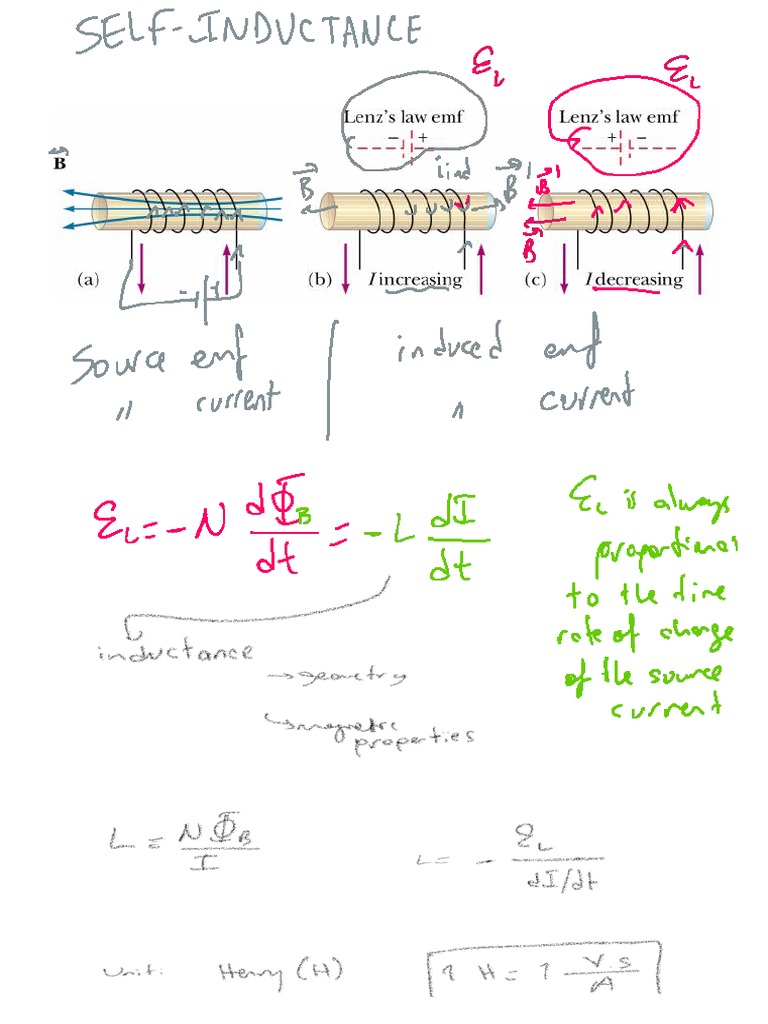 SELF-INDUCTANCE
ℰL
ℰL
Lenz's law emf
Lenz's law emf
− +
+ −
iind
B
B
B'
B'
B
(a)
(b)
I increasing
(c)
I decreasing
- +
Source emf
" current
induced emf
" current
ℰL = -N dΦB/dt = -L dI/dt
ℰL is always
proportional
to the time
rate of change
of the source
current
inductance
→ geometry
↳ magnetic
properties
L = NΦB/I
L = - ℰL/dI/dt
Unit: Henry (H)
1 H = 1 V.s/A